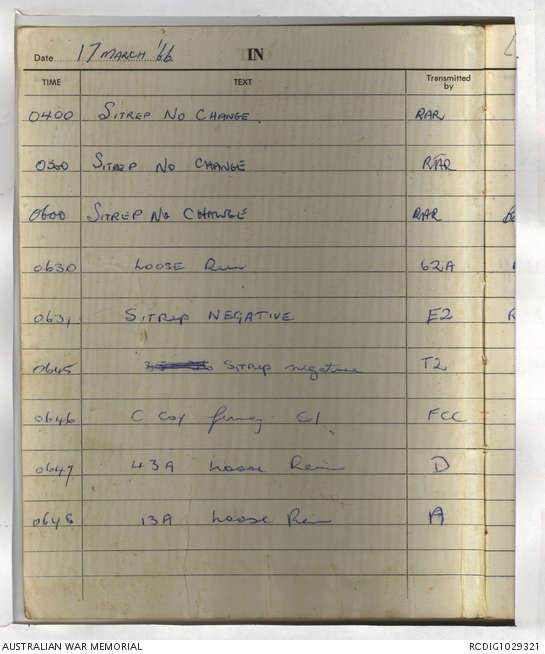 Date 17 MARCH '66 IN
TIME TEXT Transmitted by
0400 SITREP NO CHANGE. RAR
0500 SITREP NO CHANGE RAR
0600 SITREP NO CHANGE RAR
0630 LOOSE Rein 62A
0631 SITREP NEGATIVE E2
0645 SITREP negative T2
0646 C Coy C1 FCC
0647 43A Loose Rein D
0648 13A Loose Rein A
AUSTRALIAN WAR MEMORIAL RCDIG1029321